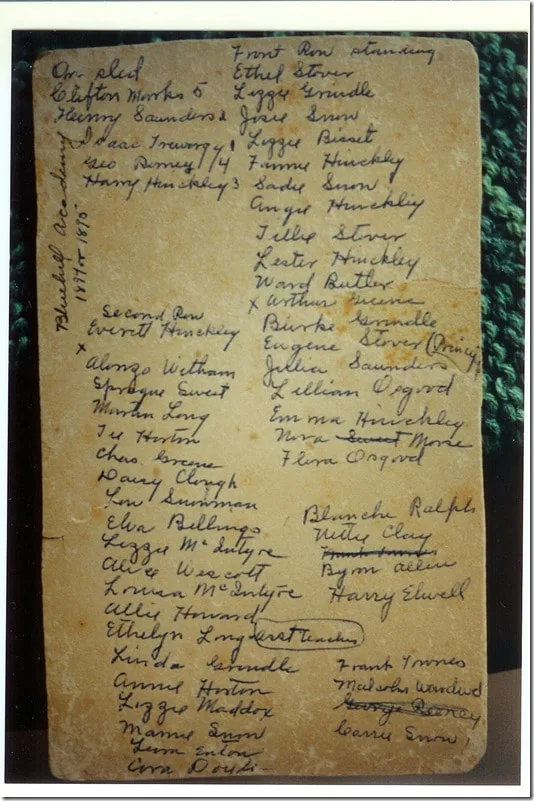 On sled
Clifton Morks 5
Henry Saunders 2
Isaac Treworgy 1
Geo Remey 14
Harry Hinckley 3
Bluehill Academy
1894 or 1895
Front Row standing
Ethel Stover
Lizzie Grindle
Josie Snow
Lizzie Bisset
Fannie Hinckley
Sadie Snow
Angie Hinckley
Tillie Stover
Lester Hinckley
Ward Butler
x Arthur Greene
Burke Grindle
Eugene Stover (Princip
Julia Saunders
Lillian Osgood
Emma Hinckley
Nora Sweet Morse
Flora Osgood
Second Row
Everett Hinckley
x
Alonzo Witham
Sprague Sweet
Martin Long
Ire Horton
Chas. Greene
Daisy Clough
Lou Snowman
Elva Billings
Lizzie McIntyre
Alice Wescott
Louisa McIntyre
Allie Howard
Ethelyn Long asst teacher
Linda Grindle
Annie Horton
Lizzie Maddox
Mamie Snow
Lena Eaton
Cora Doyle
Blanche Ralph
Nettie Clay
Byron Allen
Harry Elwell
Frank Townes
Malcolm
George
Carrie Snow